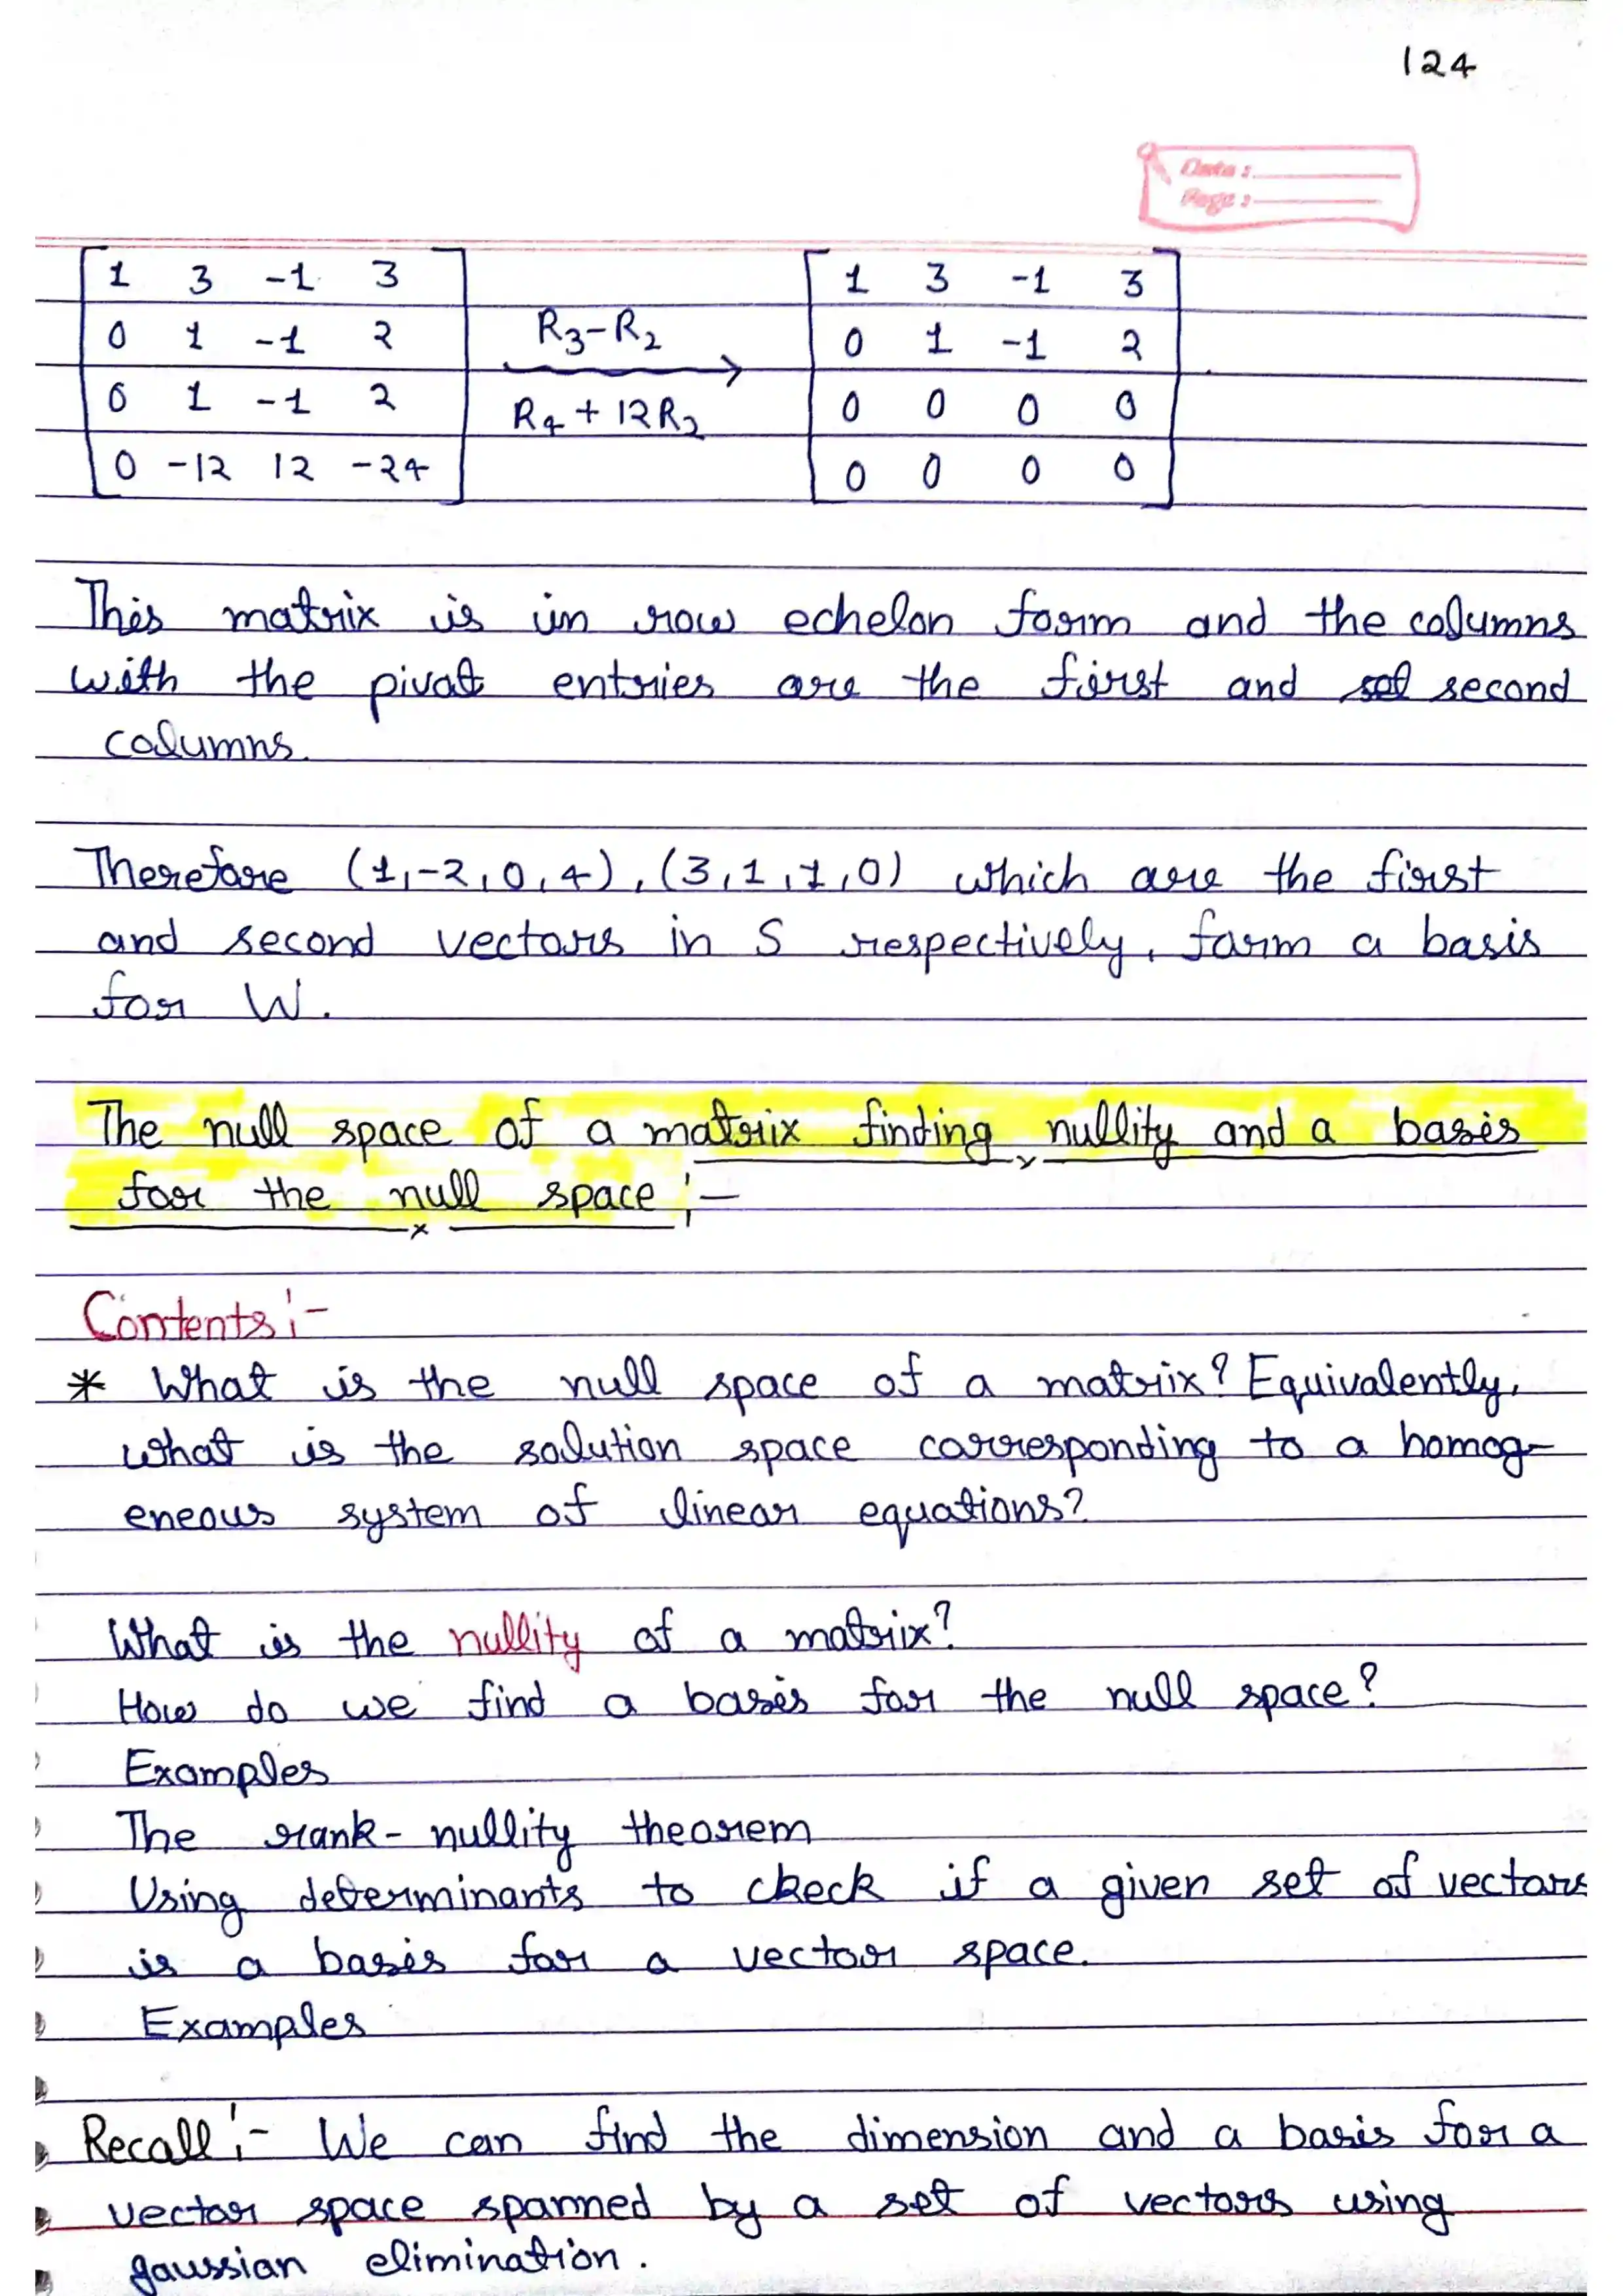 124
Date :
Page :
1 3 -1 3
0 1 -1 2
0 1 -1 2
0 -12 12 -24
R3-R2
R4+12R2
1 3 -1 3
0 1 -1 2
0 0 0 0
0 0 0 0
This matrix is in row echelon form and the columns
with the pivot entries are the first and second
columns.
Therefore (1,-2,0,4),(3,1,1,0) which are the first
and second vectors in S respectively, form a basis
for W.
The null space of a matrix finding nullity and a basis
for the null space :-
Contents :-
* What is the null space of a matrix? Equivalently,
what is the solution space corresponding to a homog-
eneous system of linear equations?
What is the nullity of a matrix?
How do we find a basis for the null space?
Examples
The rank-nullity theorem
Using determinants to check if a given set of vectors
is a basis for a vector space.
Examples
Recall :- We can find the dimension and a basis for a
vector space spanned by a set of vectors using
gaussian elimination.